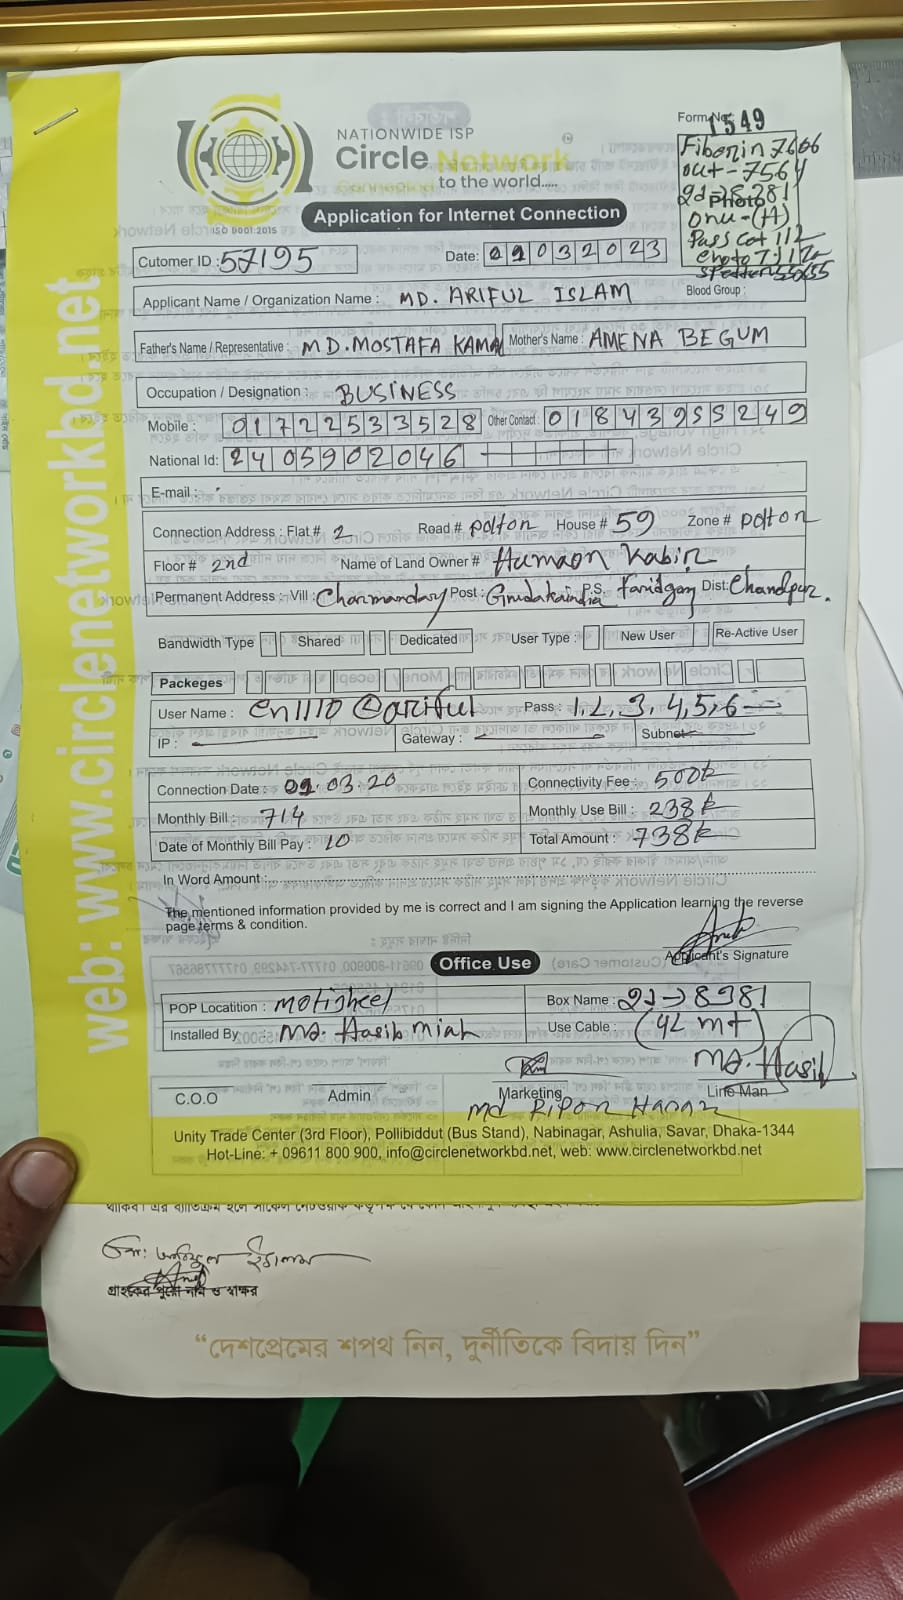 NATIONWIDE ISP
Circle Network
to the world.....
ISO 9001:2015
Form No: 1549
Fiberin 7666
out - 7564
Photo
onu-(H)
Application for Internet Connection
Cutomer ID : 57195
Date: 09032023
Blood Group :
Applicant Name / Organization Name : MD. ARIFUL ISLAM
Father's Name / Representative : MD. MOSTAFA KAMAL Mother's Name : AMENA BEGUM
Occupation / Designation : BUSINESS
Mobile : 01722533528 Other Contact : 01843955249
National Id: 2405902046
E-mail :
Connection Address : Flat # 2 Road # polton House # 59 Zone # polton
Floor # 2nd Name of Land Owner # Humaon Kabir
Permanent Address :- Vill : Charmanday Post : P.S. Faridgonj Dist: Chandpur.
Bandwidth Type Shared Dedicated User Type : New User Re-Active User
Packeges
User Name : cn1110@ariful Pass : 1,2,3,4,5,6
IP : Gateway : Subnet
Connection Date : 09.03.20 Connectivity Fee : 500tk
Monthly Bill : 714 Monthly Use Bill : 238tk
Date of Monthly Bill Pay : 10 Total Amount : 738tk
In Word Amount :
The mentioned information provided by me is correct and I am signing the Application learning the reverse
page terms & condition.
Applicant's Signature
Office Use
POP Locatition : Motijheel Box Name : 2J→8981
Installed By : MD. Hasib Miah Use Cable : (42 mt)
MD. Hasib
C.O.O Admin Marketing Line Man
Md Ripon Hasan
Unity Trade Center (3rd Floor), Pollibiddut (Bus Stand), Nabinagar, Ashulia, Savar, Dhaka-1344
Hot-Line: + 09611 800 900, info@circlenetworkbd.net, web: www.circlenetworkbd.net
web: www.circlenetworkbd.net
মো: আরিফুল ইসলাম
গ্রাহকের পুরো নাম ও স্বাক্ষর
“দেশপ্রেমের শপথ নিন, দুর্নীতিকে বিদায় দিন”